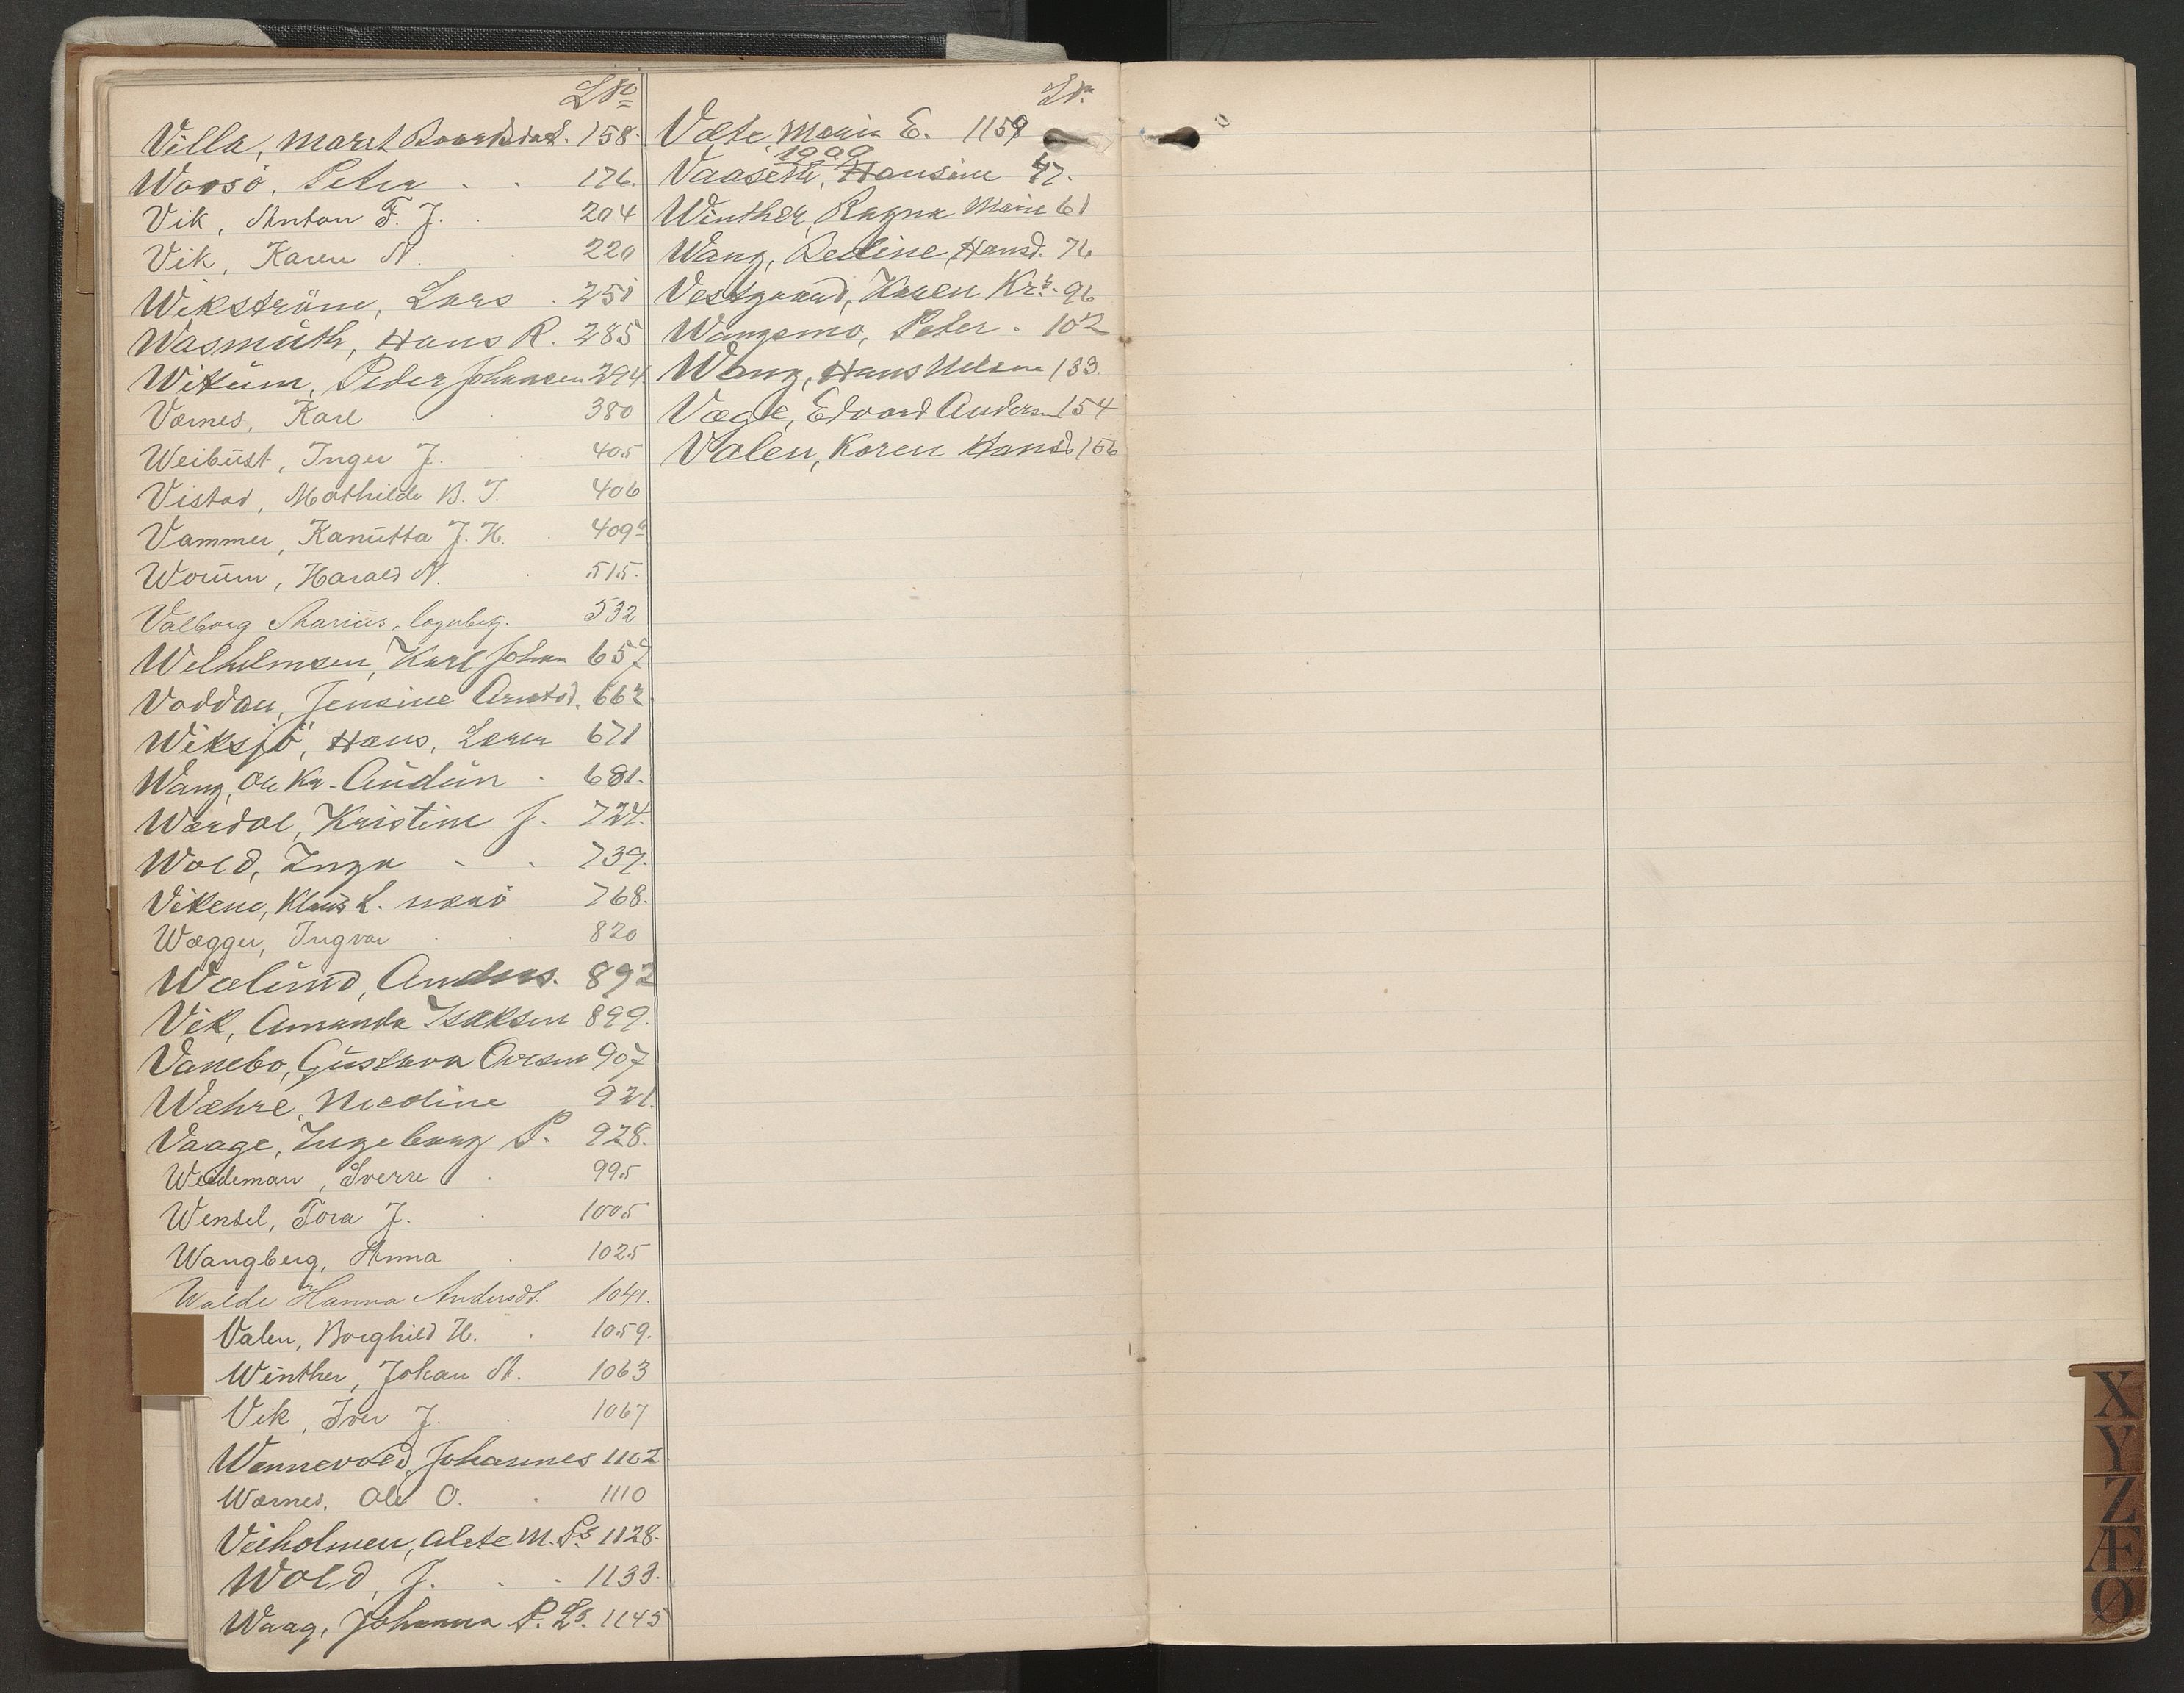 L No
Villa, Maret 158.
Waasö, Peter 176.
Vik, Anton F. J. 204
Vik, Karen N. 220
Wikström, Lars 251
Wasmuth, Hans R. 285
Wikum, Peder Johansen 294
Værnes, Karl 380
Weibust, Inger J. 405
Vistad, Mathilde B. J. 406
Vammer, Kanutta J. H. 409a
Worum, Harald N. 515.
Valborg Marius, logebetj. 532
Welhelmsen, Karl Johan 657
Vaddan, Jensine 662
Wiksjö, Hans, Laren 671
Wang, Ole Kr. Audun 681.
Wærdal, Kristine J. 724.
Wold, Inga 739.
Vikene, Klaus L. 768.
Wægger, Ingvar 820
Wælund, Anders. 892
Vik, Amanda Isaksen 899.
Vanebo, Gustava 907
Wæhre, Nicoline 921.
Vaage, Ingeborg P. 928.
Weideman, Sverre 995
Wensel, Tora J. 1005
Wangberg, Anna 1025
Walde Hanna Andersdt. 1041.
Valen, Borghild H. 1059.
Winther, Johan A. 1063
Vik, Iver J. 1067
Wennevold, Johannes 1102
Wærnes, Ole O. 1110
Veiholmen, Alete M. Ps 1128.
Wold, J. 1133.
Waag, Johanna P. Ls. 1145
L No
Væte, Marie E. 1159
1909
Vaaseth, Hansine 47.
Winther, Ragna Marie 61
Wang, Bedine, Hansd. 76
Vestgaard, Karen Kr. 96
Wangsmo, Peter. 102
Wang, Hans Nilsen 133.
Vægle, Edvard Andersen 154
Valen, Karen Hansd 156
X
Y
Z
Æ
Ø